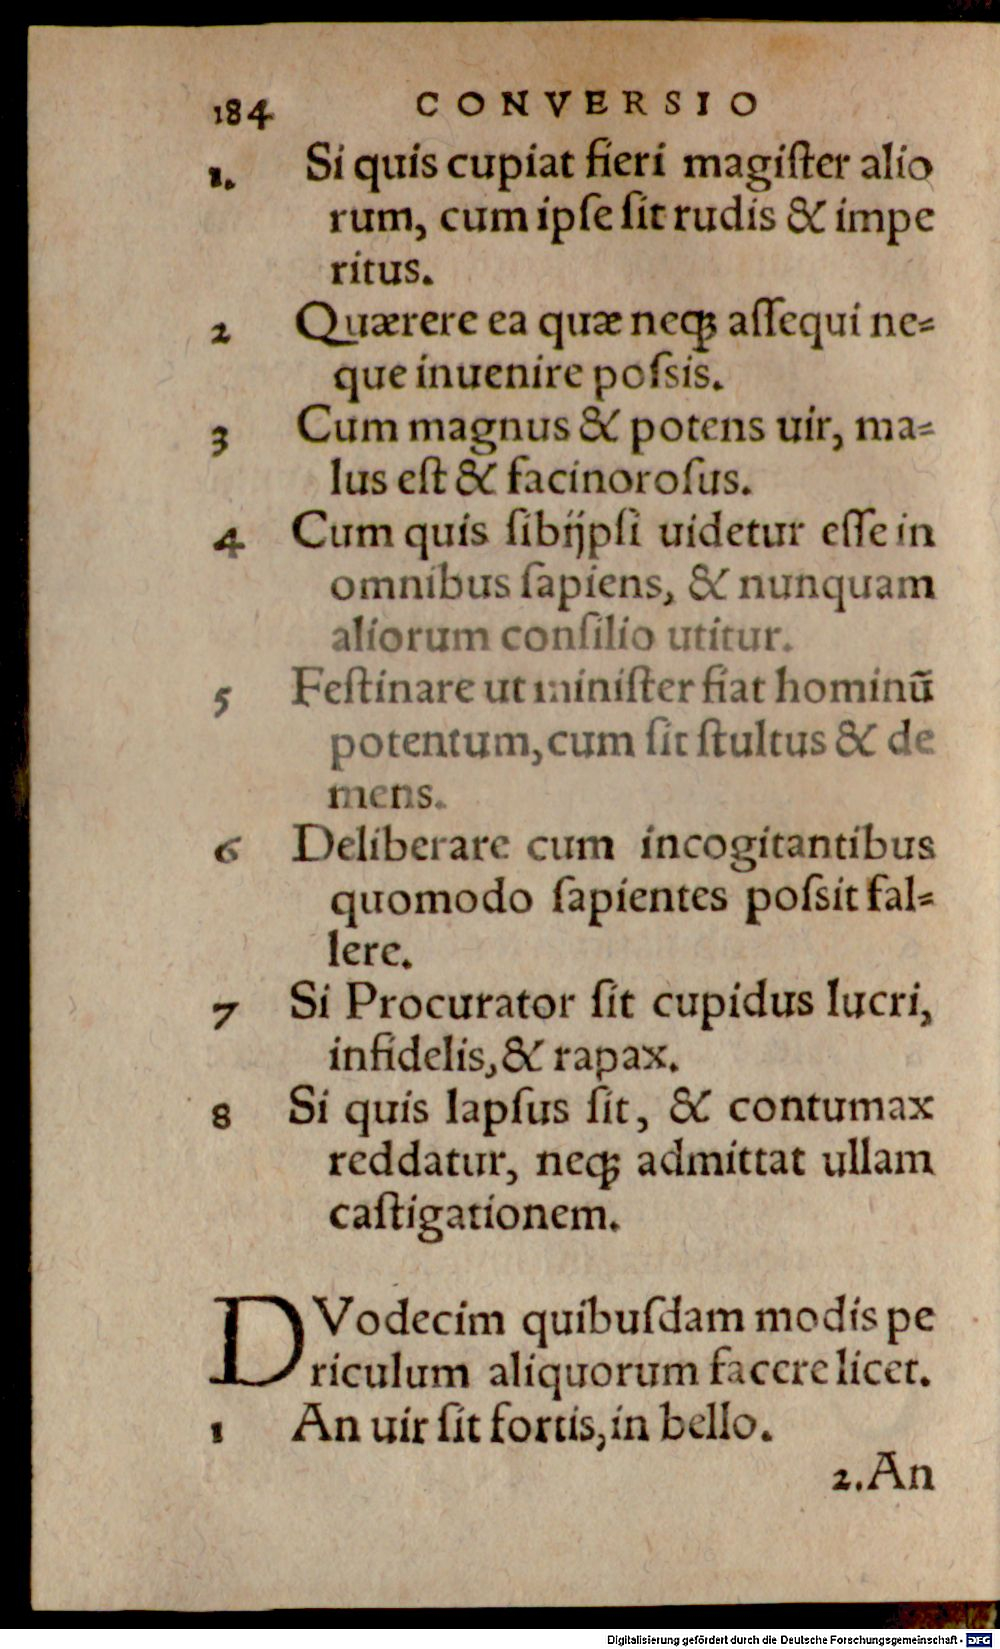 184 CONVERSIO
1. Si quis cupiat fieri magiſter alio
rum, cum ipſe ſit rudis & impe
ritus.
2 Quærere ea quæ neqꝫ aſſequi ne⸗
que inuenire poſsis.
3 Cum magnus & potens uir, ma⸗
lus eſt & facinoroſus.
4 Cum quis ſibijpſi uidetur eſſe in
omnibus ſapiens, & nunquam
aliorum conſilio utitur.
5 Feſtinare ut miniſter fiat hominū
potentum, cum ſit ſtultus & de
mens.
6 Deliberare cum incogitantibus
quomodo ſapientes poſsit fal⸗
lere.
7 Si Procurator ſit cupidus lucri,
infidelis, & rapax.
8 Si quis lapſus ſit, & contumax
reddatur, neqꝫ admittat ullam
caſtigationem.
DVodecim quibuſdam modis pe
riculum aliquorum facere licet.
1 An uir ſit fortis, in bello.
2. An
Digitalisierung gefördert durch die Deutsche Forschungsgemeinschaft - DFG